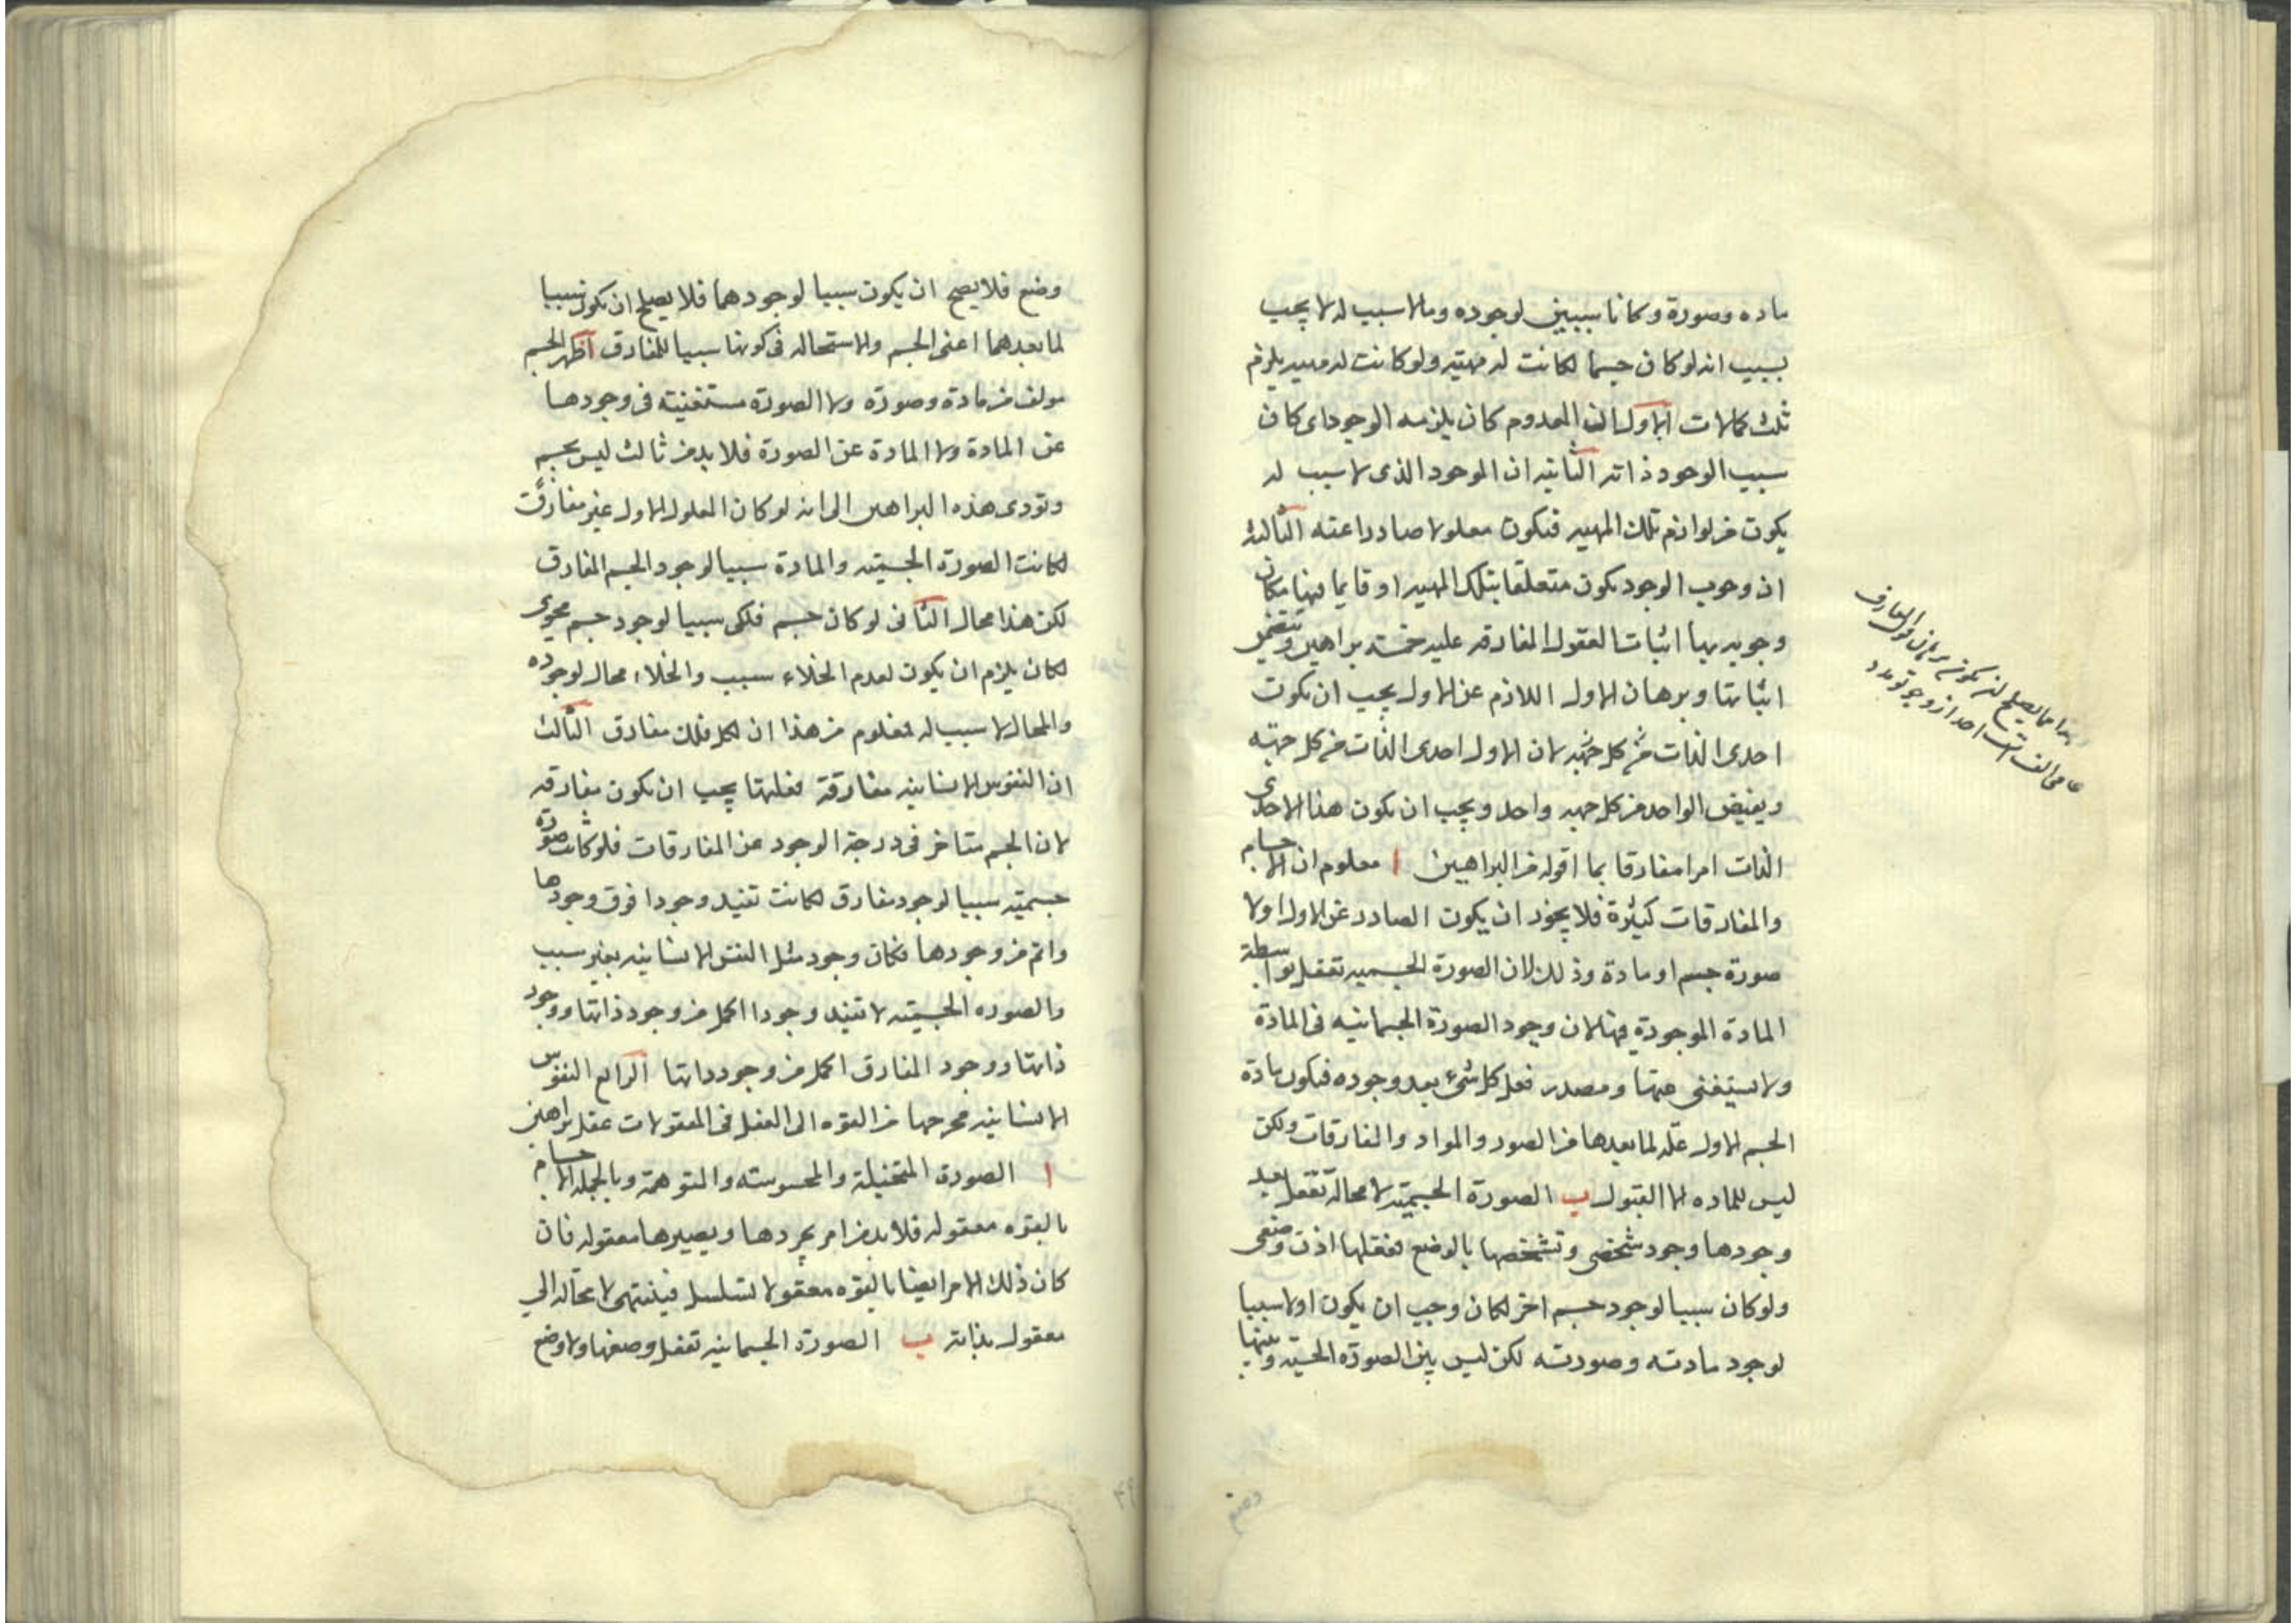 ماده وصورة وكانا سببين لوجوده ومالا سبب له لا يجب
بسبب انه لو كان جسما لكانت له مهيته ولو كانت له مهيه يلزم
ثلث محالات الاول ان المعدوم كان يلزمه الوجود اى كان
سبب الوجود ذاته الثانيه ان الموجود الذى لا سبب له
يكون من لوازم تلك المهيه فيكون معلولا صادرا عنه الثالثة
ان وجوب الوجود يكون متعلقا بتلك المهيه او قايما فيها مكان
وجوبه بها اثبات العقول المفارقه عليه خمسة براهين
اثباتها وبرهان الاول اللازم عن الاول يجب ان يكون
احدى الذات من كل جهة لان الاول احدى الذات من كل جهته
ويفيض الواحد من كل جهه واحد ويجب ان يكون هذا الاحدى
الذات امرا مفارقا بما اقوله من البراهين ا معلوم ان الاجسام
والمفارقات كثيرة فلا يجوز ان يكون الصادر عن الاول اولا
صورة جسم او مادة وذلك لان الصورة الجسميه تفعل بواسطة
المادة الموجودة فيها لان وجود الصورة الجسمانيه فى المادة
ولا يستغنى عنها ومصدر فعل كل شىء بعد وجوده فيكون مادة
الجسم الاول علّه لما بعدها من الصور والمواد والمفارقات ولكن
ليس للماده الا القبول ب الصورة الجسميّة لا محالة تفعل بعد
وجودها وجود شخصى وتشخصها بالوضع ففعلها اذن وضعى
ولو كان سببا لوجود جسم اخر لكان وجب ان يكون اولا سببا
لوجود مادته وصورته لكن ليس بين الصورة الجسميّه وبينها
وضع
وضع فلا يصح ان يكون سببا لوجودهما فلا يصلح ان يكون سببا
لما بعدهما اعنى الجسم والاستحاله فى كونها سببا للمفارق اظهر الجسم
مولف من مادة وصورة ولا الصورة مستغنية فى وجودها
عن المادة ولا المادة عن الصورة فلا بد من ثالث ليس بجسم
وتودى هذه البراهين الى انه لو كان المعلول الاول غير مفارق
لكانت الصورة الجسميّه والمادة سببا لوجود الجسم المفارق
لكن هذا محال الثانى لو كان جسم فلكى سببا لوجود جسم محوى
لكان يلزم ان يكون لعدم الخلاء سبب والخلاء محال لوجوده
والمحال لا سبب له فمعلوم من هذا ان لكل فلك مفارق الثالث
ان النفوس الانسانيه مفارقة فعلتها يجب ان يكون مفارقه
لان الجسم متاخر فى درجة الوجود عن المفارقات فلو كانت صورة
جسميّه سببا لوجود مفارق لكانت تفيد وجودا فوق وجودها
واتم من وجودها فكان وجود مثل النفس الانسانيه بغير سبب
والصوره الجسميّه لا تفيد وجودا اكمل من وجود ذاتها ووجود
ذاتها ووجود المفارق اكمل من وجود ذاتها الرابع النفوس
الانسانيه مخرجها من القوه الى الفعل فى المعقولات عقل براهين
ا الصورة المتخيلة والمحسوسه والمتوهمة وبالجمله الاجسام
بالقوه معقوله فلا بد من امر يجردها ويصيرها معقوله فان
كان ذلك الامر ايضا بالقوه معقولا لتسلسل فينتهى لا محاله الي
معقول بذاته ب الصورة الجسمانيه تفعل وضعها ولا وضع
٤٩